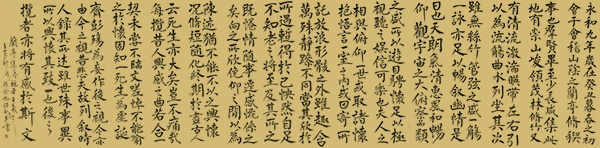 永和九年歲在癸丑暮春之初
會于會稽山陰之蘭亭脩禊
事也群賢畢至少長咸集此
地有崇山峻領茂林脩竹又
有清流激湍映帶左右引
以為流觴曲水列坐其次
雖無絲竹管弦之盛一觴
一詠亦足以暢敘幽情是
日也天朗氣清惠風和暢
仰觀宇宙之大俯察品類
之盛所以遊目騁懷足以極
視聽之娛信可樂也夫人之
相與俯仰一世或取諸懷
抱悟言一室之內或因寄所
託放浪形骸之外雖趣舍
萬殊靜躁不同當其欣於
所遇暫得於己怏然自足
不知老之將至及其所之
既惓情隨事遷感慨係之
矣向之所欣俛仰之間以為
陳迹猶不能不以之興懷
況脩短隨化終期於盡古人
云死生亦大矣豈不痛哉
每攬昔人興感之由若合一
契未嘗不臨文嗟悼不能喻
之於懷固知一死生為虛誕
齊彭殤為妄作後之視今亦
由今之視昔悲夫故列敘時
人錄其所述雖世殊事異
所以興懷其致一也後之
攬者亦將有感於斯文